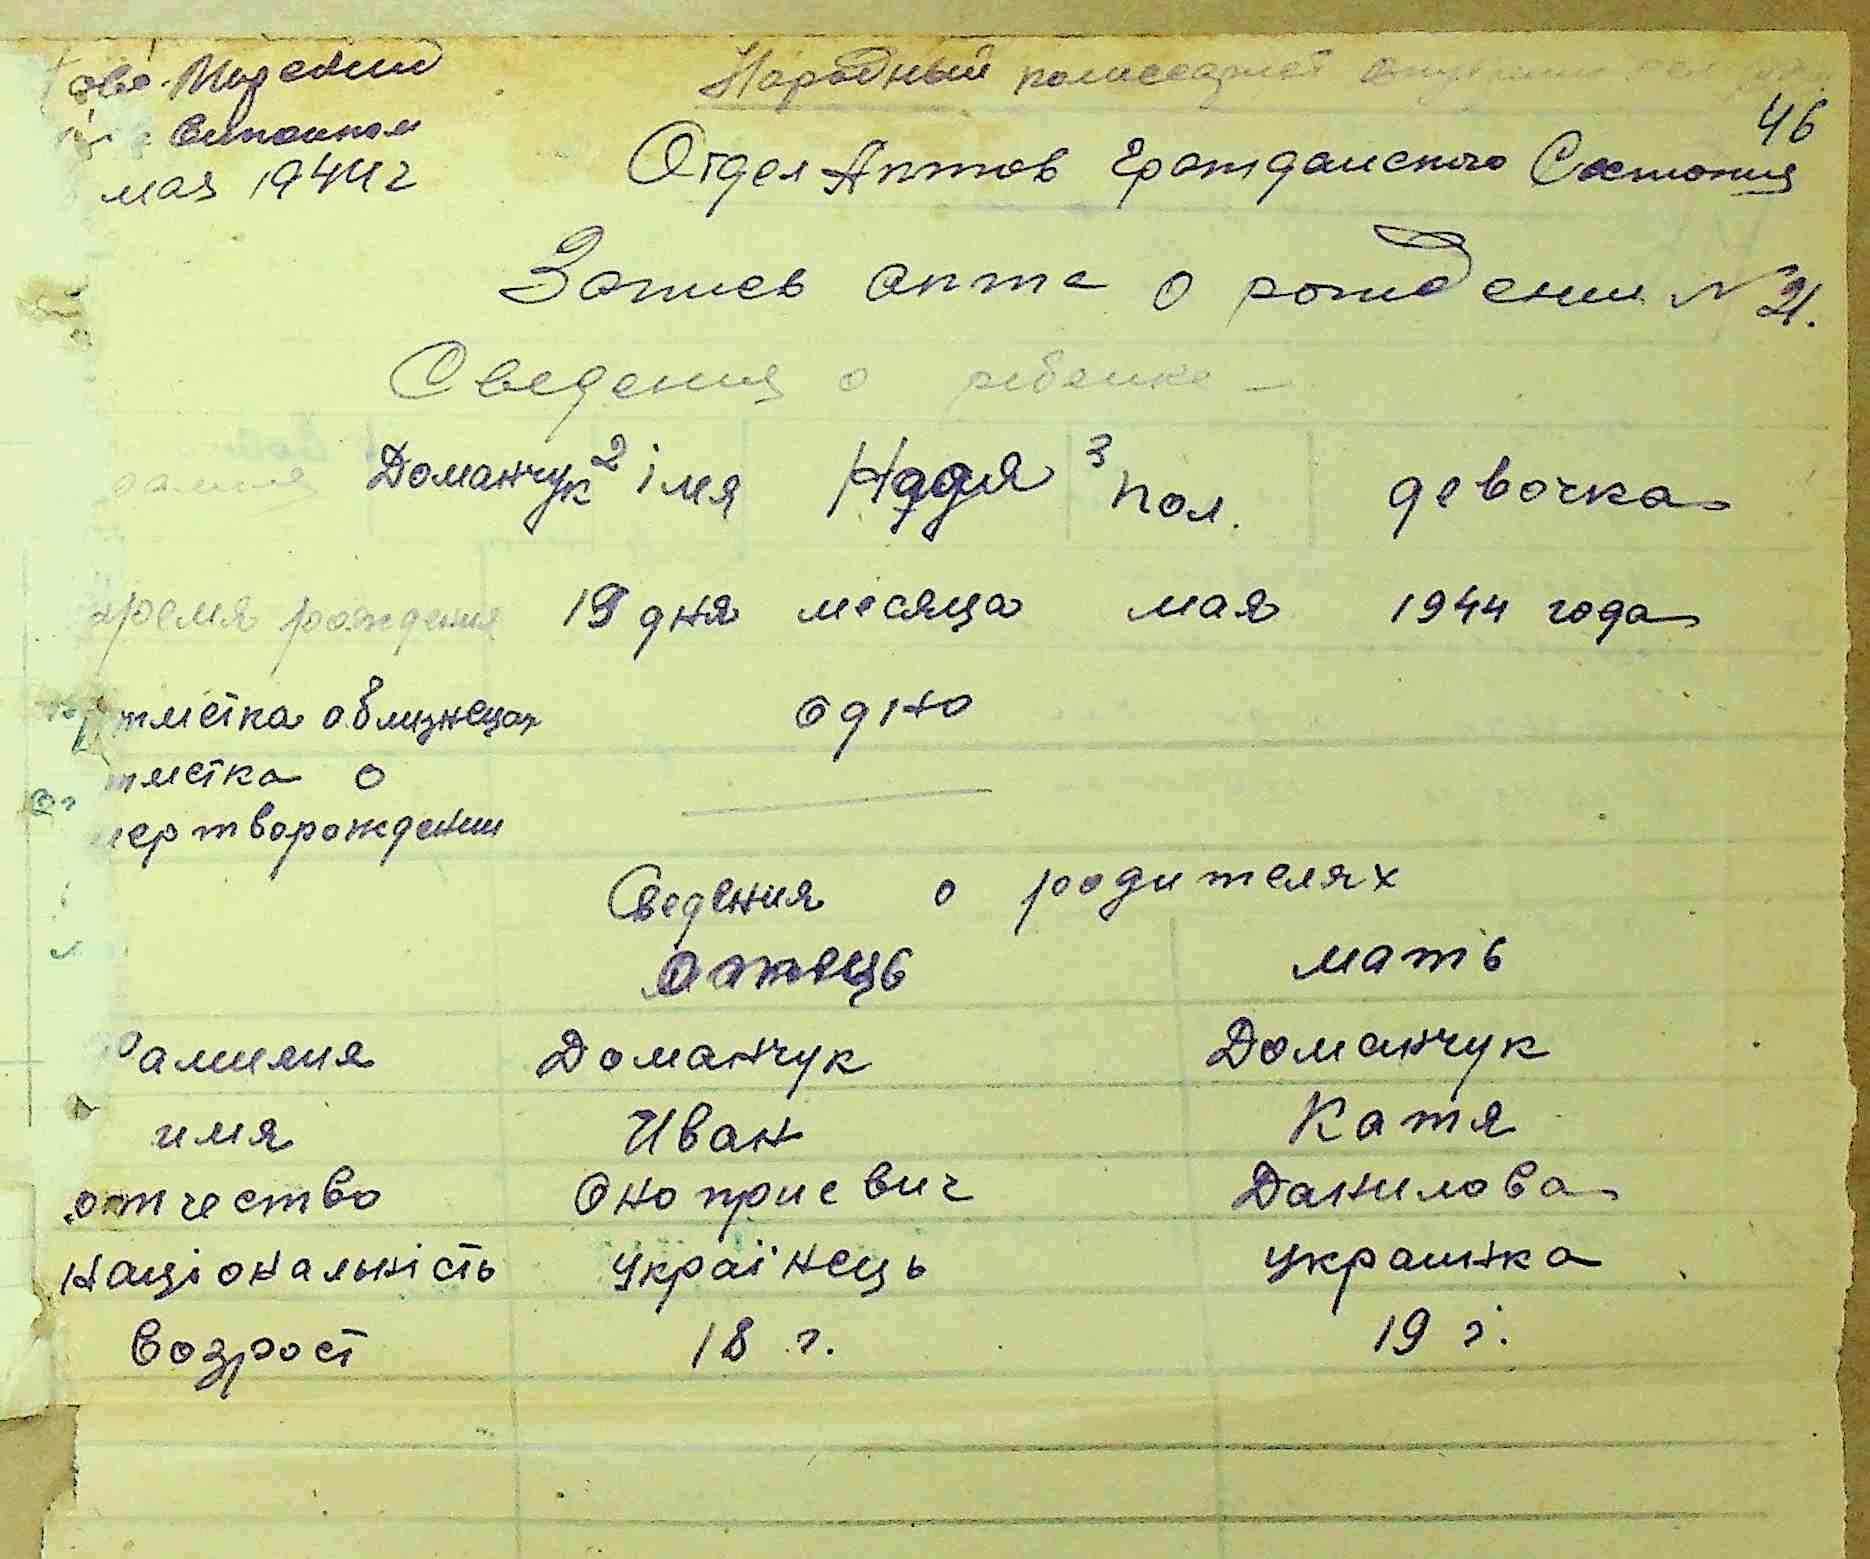 мая 1944 г
Народный комиссариат
46
Отдел Актов Гражданского Состояния
Запись акта о рождении N 21.
Сведения о ребенке
Доманчук 2 імя Надя 3 пол. девочка
время рождения 19 дня месяца мая 1944 года
тметка о близнецах одно
тметка о
мертворождении
Сведения о родителях
отець мать
Фамилия Доманчук Доманчук
имя Иван Катя
отчество Оноприевич Данилова
національність українець украинка
возрост 18 г. 19 г.